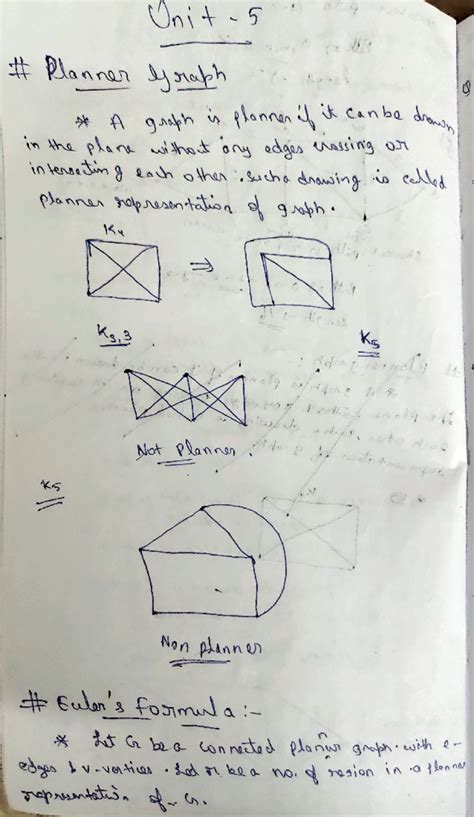 Unit - 5
# Planner Graph
* A graph is planner if it can be drawn
in the plane without any edges crossing or
intersecting each other. such a drawing is called
planner representation of graph.
K4
⇒
K3,3
K5
Not Planner.
K5
Non planner
# Euler's formula :-
* Let G be a connected planar graph. with e-
edges & v-verties. Let r be a no. of resion in a planner
representation of G.